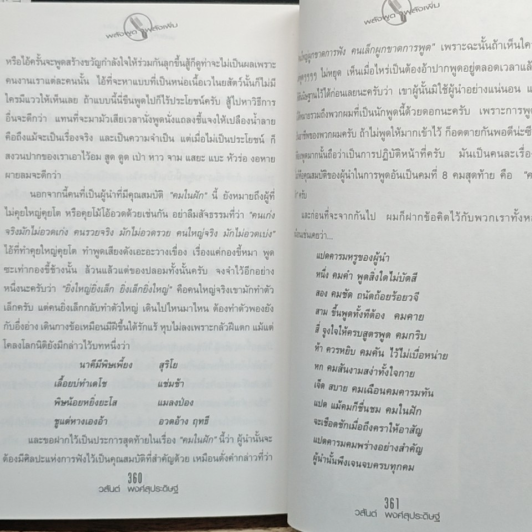 พลังพูด พลังเพิ่ม
หรือไอ้ครั้นจะพูดสร้างขวัญกำลังใจให้ร่วมกันลุกขึ้นสู้ก็ดูท่าจะไม่เป็นผลเพราะ
คนงานเราแต่ละคนนั้น ไอ้ที่จะหาแบบที่เป็นหน่อเนื้อเวไนยสัตว์นั้นก็ไม่มี
ใครมีแววให้เห็นเลย ถ้าแบบนี้นี่ขืนพูดไปก็ไร้ประโยชน์ครับ สู้ไปหาวิธีการ
อื่นจะดีกว่า แทนที่จะมามัวเสียเวลานั่งพูดนั่งแถลงชี้แจงให้เปลืองน้ำลาย
คือถึงแม้จะเป็นเรื่องจริง และเป็นความจำเป็น แต่เมื่อไม่เป็นประโยชน์ ก็
สงวนปากของเราเอาไว้อม สูด ดูด เป่า หาว จาม แสยะ แบะ หัวร่อ งอหาย
ผายลมจะดีกว่า
นอกจากนี้คนที่เป็นผู้นำที่มีคุณสมบัติ "คมในฝัก" นี้ ยังหมายถึงผู้ที่
ไม่คุยใหญ่คุยโต หรือคุยโม้โอ้อวดด้วยเช่นกัน อย่าลืมสัจธรรมที่ว่า "คนเก่ง
จริงมักไม่อวดเก่ง คนรวยจริง มักไม่อวดรวย คนใหญ่จริง มักไม่อวดเบ่ง"
ไอ้ที่ทำคุยใหญ่คุยโต ทำพูดเสียงดังเอะอะวางเขื่อง เรื่องแค่กองขี้หมา พูด
ซะเท่ากองขี้ช้างนั้น ล้วนแล้วแต่ของปลอมทั้งนั้นครับ จงจำไว้อีกอย่าง
หนึ่งนะครับว่า "ยิ่งใหญ่ยิ่งเล็ก ยิ่งเล็กยิ่งใหญ่" คือคนใหญ่จริงเขามักทำตัว
เล็กครับ แต่คนยิ่งเล็กกลับทำตัวใหญ่ เดินไปไหนมาไหน ต้องทำตัวพองยัง
กับอึ่งอ่าง เดินกางข้อเหมือนมีฝีขึ้นใต้รักแร้ หุบไม่ลงเพราะกลัวฝีแตก แม้แต่
โคลงโลกนิติยังมีกล่าวไว้บทหนึ่งว่า
นาคีมีพิษเพี้ยง สุริโย
เลื้อยบ่ทำเดโช แช่มช้า
พิษน้อยหยิ่งยะโส แมลงป่อง
ชูแต่หางเองอ้า อวดอ้าง ฤทธี
และขอฝากไว้เป็นประการสุดท้ายในเรื่อง "คมในฝัก" นี้ว่า ผู้นำนั้นจะ
ต้องมีศิลปะแห่งการฟังไว้เป็นคุณสมบัติที่สำคัญด้วย เหมือนดั่งคำกล่าวที่ว่า
360
วสันต์ พงศ์สุประดิษฐ์
พลังพูด พลังเพิ่ม
ใหญ่ผูกขาดการฟัง คนเล็กผูกขาดการพูด" เพราะฉะนั้นถ้าเห็นใคร
ๆๆๆๆ ไม่หยุด เห็นเมื่อไหร่เป็นต้องอ้าปากพูดอยู่ตลอดเวลาแล้ว
ได้ก่อนเลยนะครับว่า เขาผู้นั้นมิใช่ผู้นำอย่างแน่นอน
พวกผมที่เป็นนักพูดนี้ด้วยดอกนะครับ เพราะการพูด
ชีพของพวกผมครับ ถ้าไม่พูดให้มากเข้าไว้ ก็อดตายกันพอดีน่ะซิ
พูดมากนั้นถือว่าเป็นการปฏิบัติหน้าที่ครับ มันเป็นคนละเรื่อง
คุณสมบัติของผู้นำในการพูดอันเป็นคมที่ 8 คมสุดท้าย คือ
ครับ
และก่อนที่จะจากกันไป ผมก็ฝากข้อคิดไว้กับพวกเราทั้งหลาย
เคยว่า...
แปดคารมหรูของผู้นำ
หนึ่ง คมคำ พูดสิ่งใดไม่บัดสี
สอง คมชัด ถนัดถ้อยร้อยวจี
สาม ขึ้นพูดทั้งทีต้อง คมคาย
สี่ จูงใจให้ครบสูตรพูด คมกริบ
ห้า ควรหยิบ คมคัน ไว้ไม่เบื่อหน่าย
หก คมสันงามสง่าทั้งใจกาย
เจ็ด สบาย คมเฉือนคมคารมทัน
แปด แม้คมก็ชื่นชม คมในฝัก
จะเชือดชักเมื่อถึงคราให้อาสัญ
แปดคารมคมพร่างอย่างสำคัญ
ผู้นำนั้นพึงเจนจบครบทุกคม
361
วสันต์ พงศ์สุประดิษฐ์